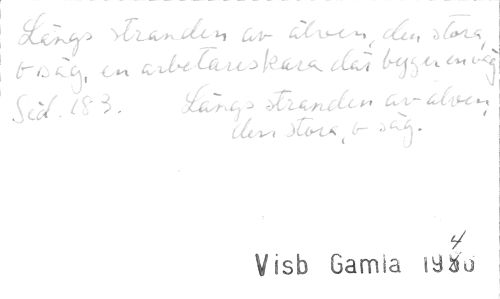 Längs stranden av älven, den stora,
o säg, en arbetareskara där bygger en väg
Sid. 183. Längs stranden av älven,
den stora, o säg.
4
Visb Gamla 1986